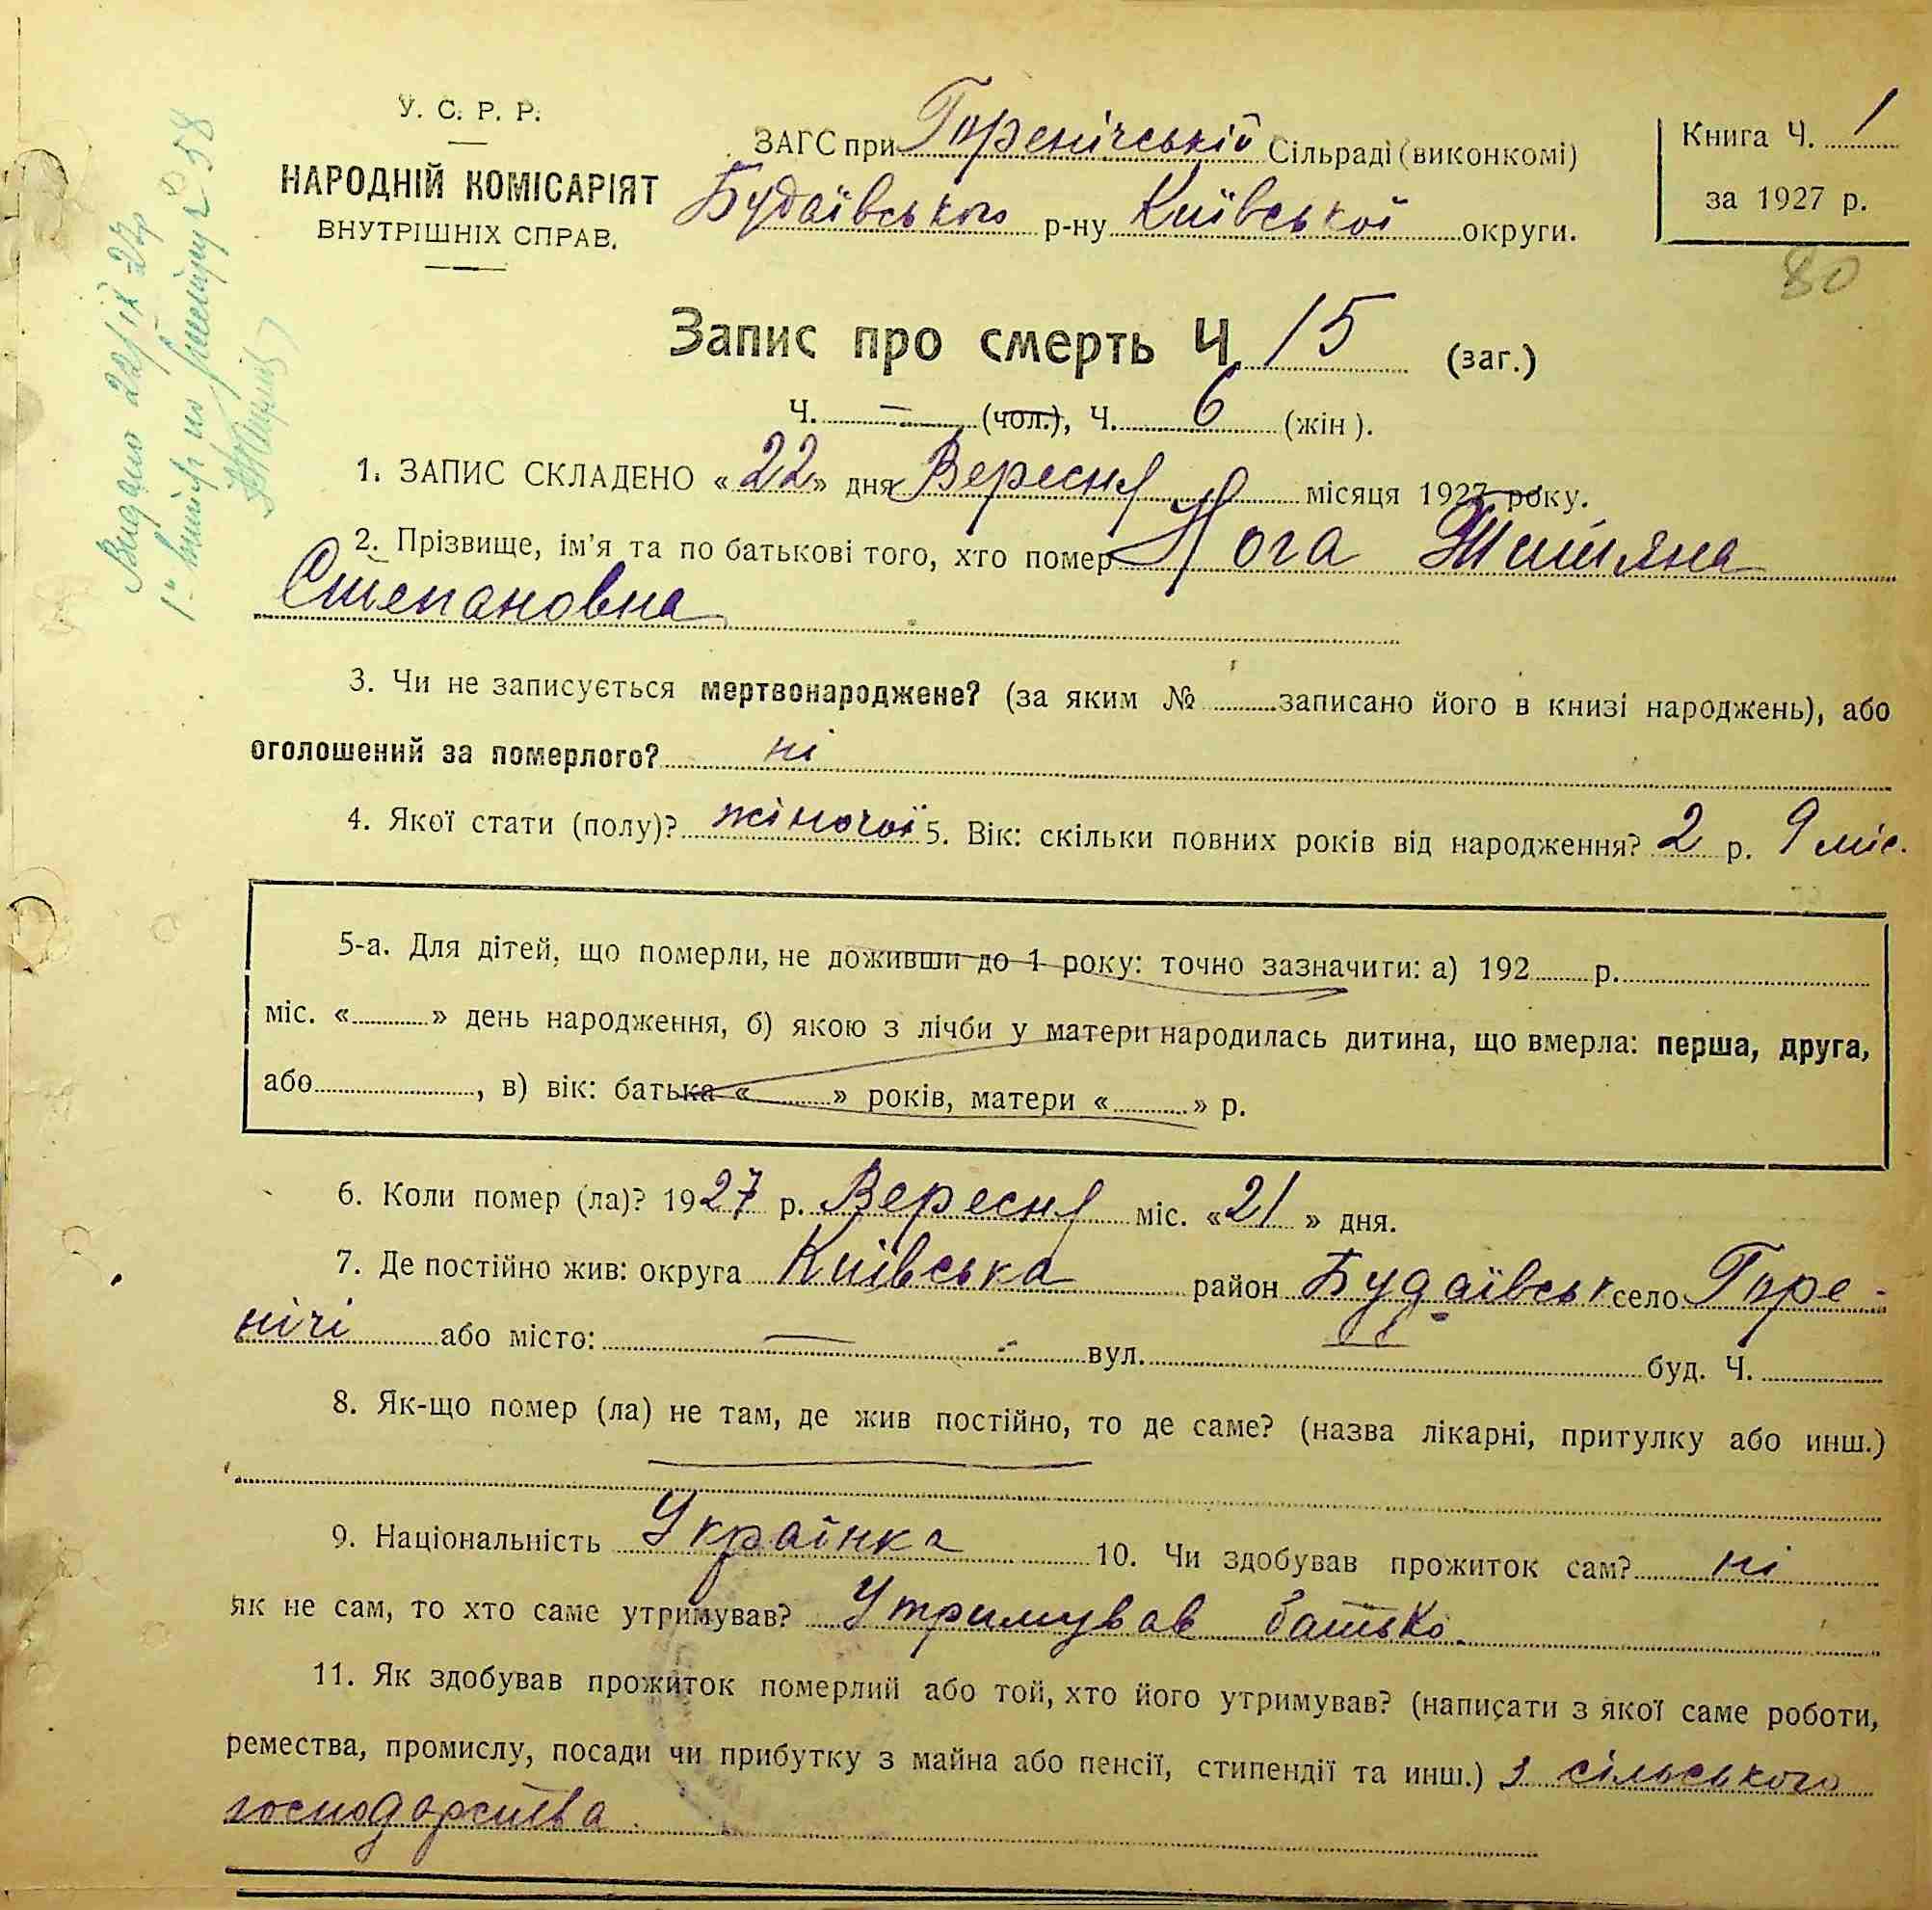 У. С. Р. Р.
НАРОДНІЙ КОМІСАРІЯТ
ВНУТРІШНІХ СПРАВ.
ЗАГС при Горенічській Сільраді (виконкомі)
Будаївського р-ну Київської округи.
Книга Ч. 1
за 1927 р.
80
Видано 22/IX 27р
Запис про смерть Ч. 15 (заг.)
Ч. — (чол.), Ч. 6 (жін).
1. ЗАПИС СКЛАДЕНО «22» дня Вересня місяця 1927 року.
2. Прізвище, ім'я та по батькові того, хто помер Нога Титяна
Степановна
3. Чи не записується мертвонароджене? (за яким № ......записано його в книзі народжень), або
оголошений за померлого? ні
4. Якої стати (полу)? жіночої 5. Вік: скільки повних років від народження? 2 р. 9 міс.
5-а. Для дітей, що померли, не доживши до 1 року: точно зазначити: а) 192......р.
міс. «......» день народження, б) якою з лічби у матери народилась дитина, що вмерла: перша, друга,
або......, в) вік: батька «......» років, матери «......» р.
6. Коли помер (ла)? 1927 р. Вересня міс. «21» дня.
7. Де постійно жив: округа Київська район Будаївськ село Горе-
нічі або місто: — вул. ...... буд. Ч. ......
8. Як-що помер (ла) не там, де жив постійно, то де саме? (назва лікарні, притулку або инш.)
9. Національність Українка 10. Чи здобував прожиток сам? ні
як не сам, то хто саме утримував? Утримував батько.
11. Як здобував прожиток померлий або той, хто його утримував? (написати з якої саме роботи,
ремества, промислу, посади чи прибутку з майна або пенсії, стипендії та инш.) з сільського
господарства.